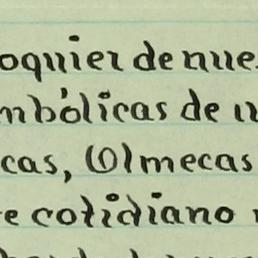 oquier de nue
mbólicas de u
cas, (O)lmecas
e cotidiano